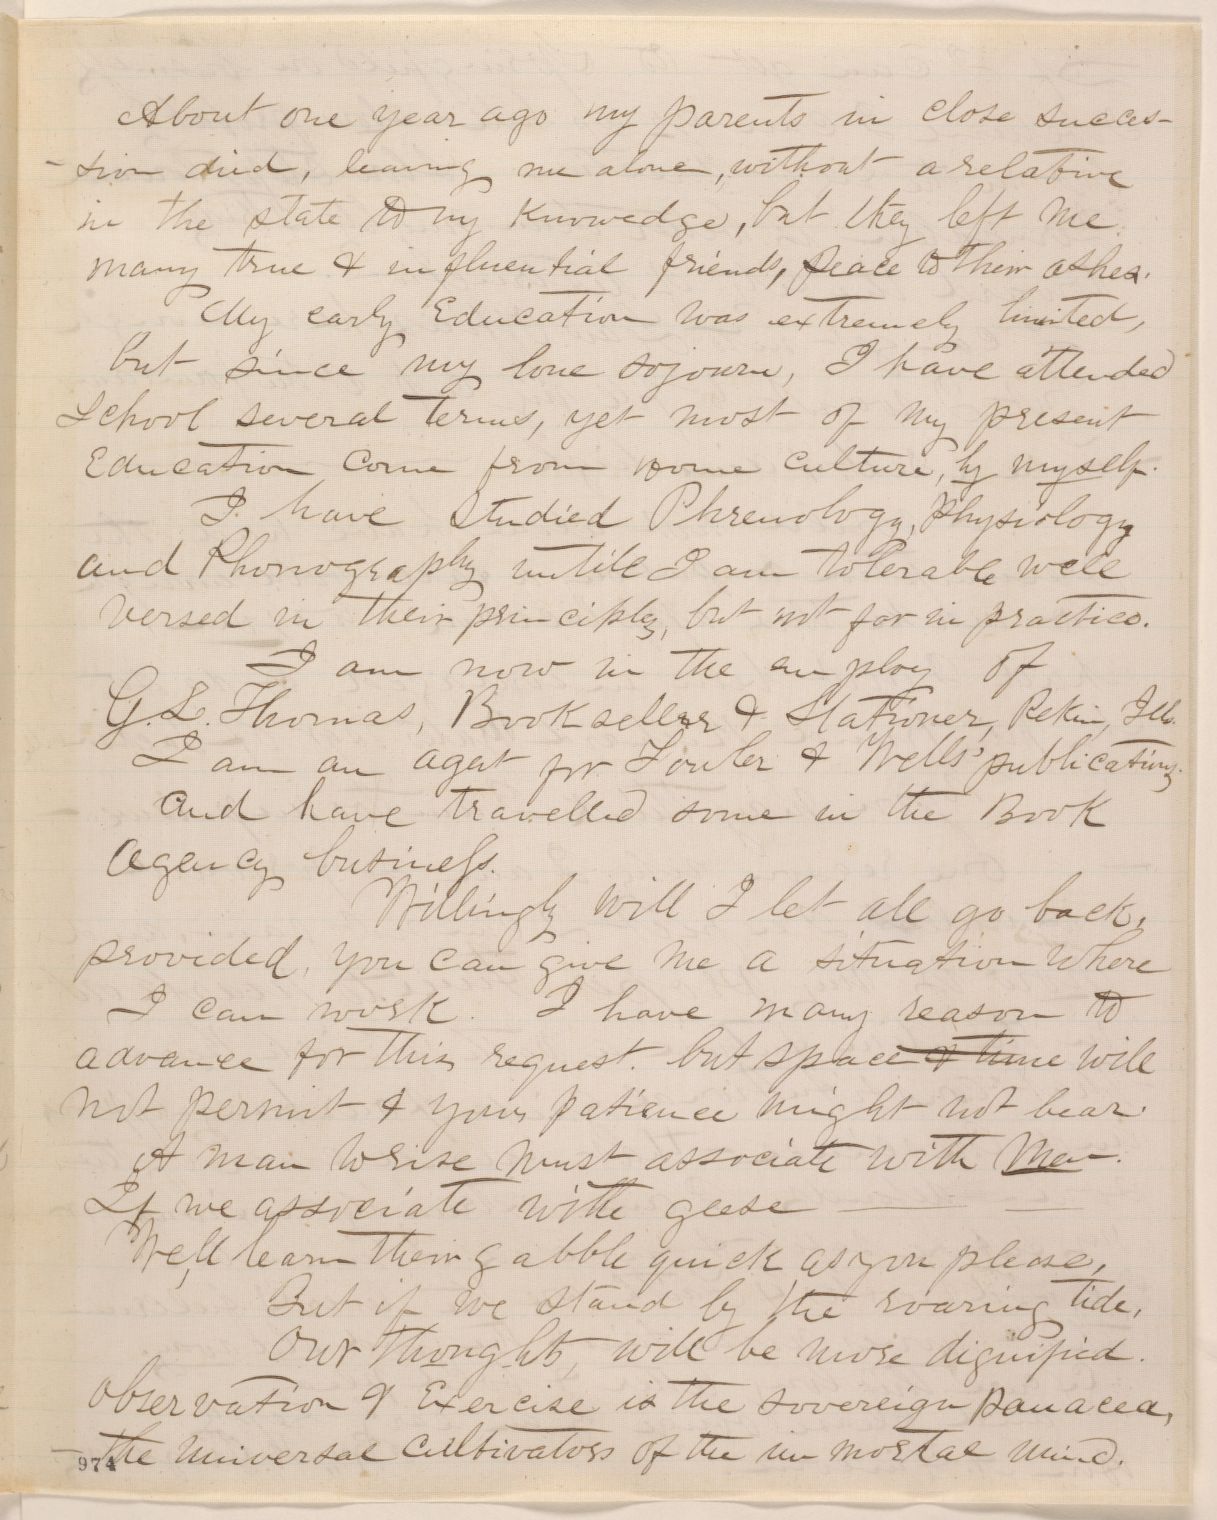 About one year ago my parents in close succes-
-sion died, leaving me alone, without a relative
in the state to my knowedge, but they left me
many true & influential friends, peace to their ashes.
My early Education was extremely limited,
but since my lone sojourn, I have attended
School several terms, yet most of my present
Education come from home culture, by myself.
I have Studied Phrenology, Physiology
and Phonography untill I am tolerable well
versed in their principles, but not for in practice.
I am now in the employ of
G. L. Thomas, Bookseller & Stationer, Pekin, Ills.
I am an agat for Fowler & Wells' publications.
and have travelled some in the Book
Agency business.
Willingly will I let all go back,
provided, you can give me a situation where
I can work. I have many reason to
advance for this request. but space & time will
not permit & your patience might not bear.
A man to rise must associate with Men.
If we associate with geese — —
We'll learn their gabble quick as you please,
But if we stand by the roaring tide,
Our thoughts, will be more dignified.
Observation & Exercise is the sovereign panacea,
the universal cultivators of the immortal mind.
974